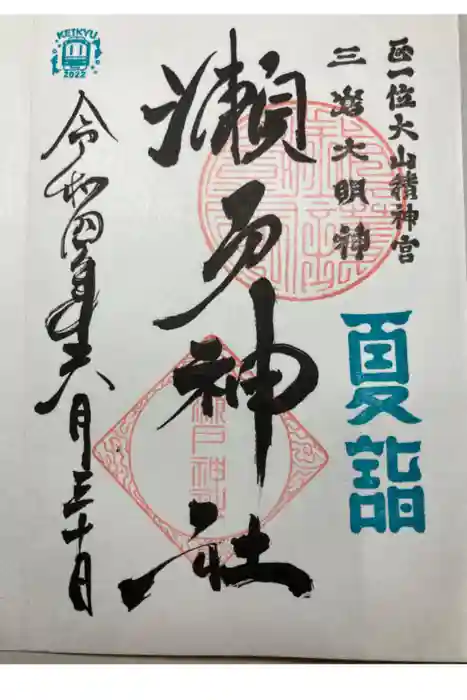 正一位大山積神宮
三嶋大明神
夏詣
瀬戸神社
瀬戸神社
令和四年六月三十日
KEIKYU
2022